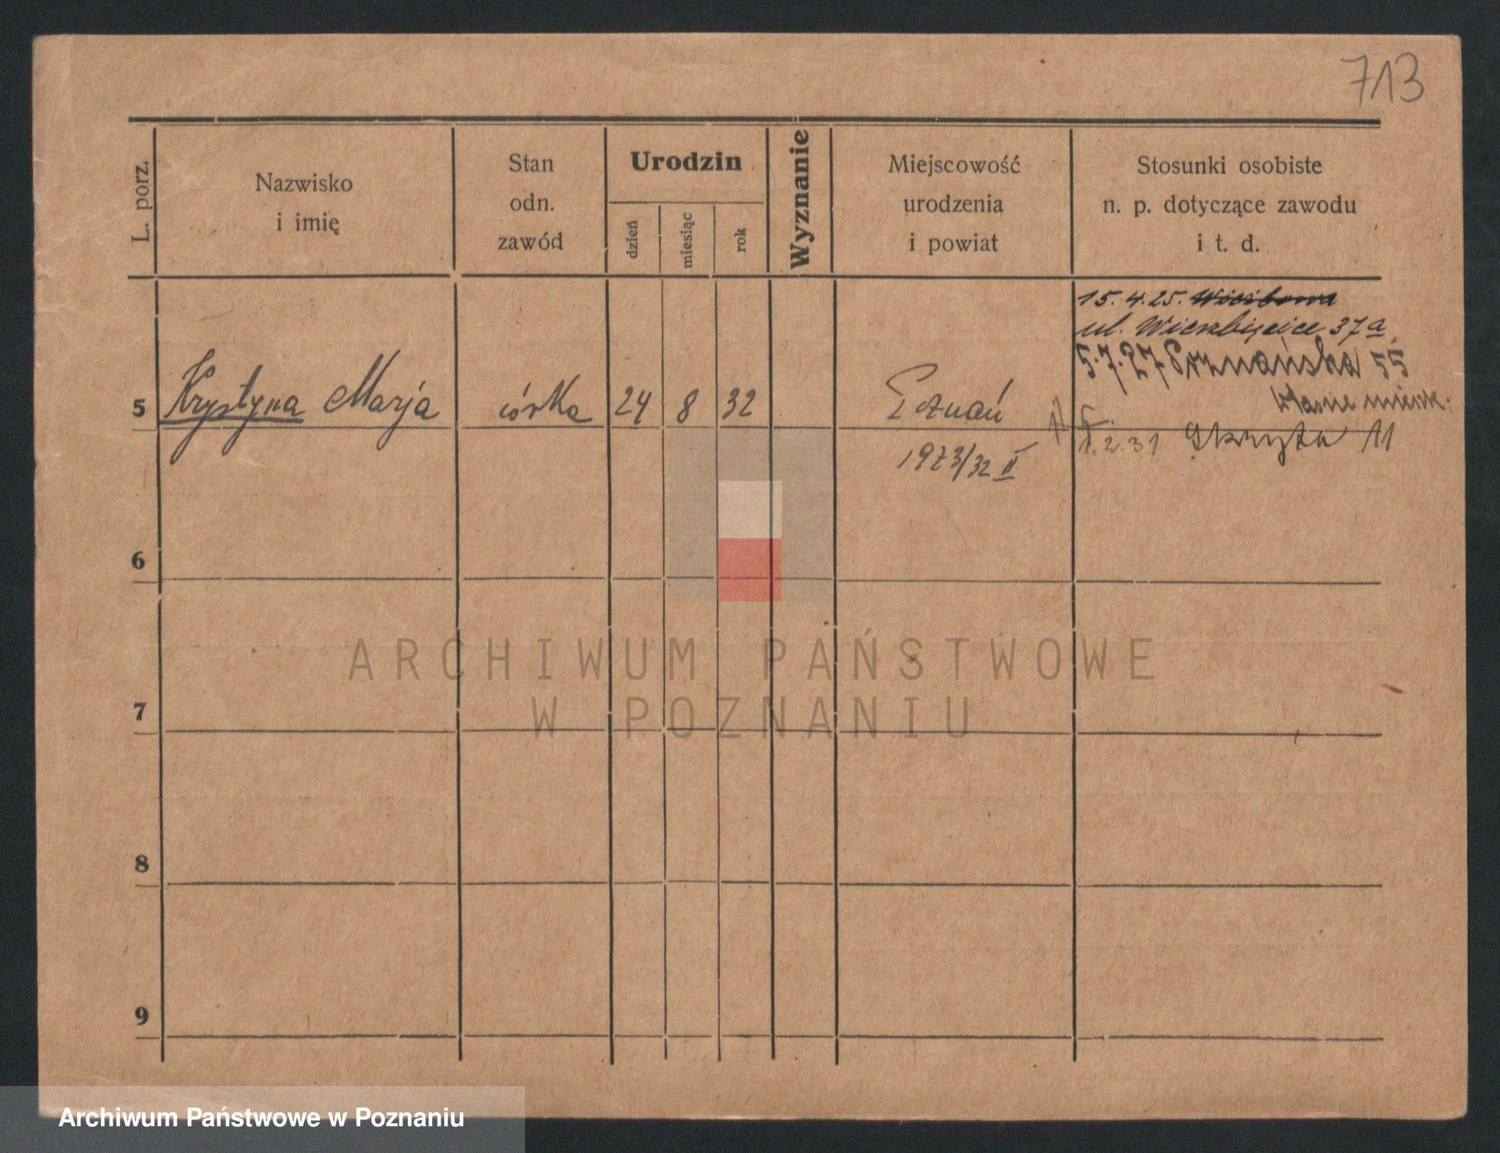 713
L. porz.
Nazwisko
i imię
Stan
odn.
zawód
Urodzin
dzień
miesiąc
rok
Wyznanie
Miejscowość
urodzenia
i powiat
Stosunki osobiste
n. p. dotyczące zawodu
i t. d.
15.4.25.
ul. Wierzbięcice 37a
5.7.27 Poznańska 55
własne mieszk.
5 Krystyna Marja córka 24 8 32 Poznań
2.31 Skryta 11
1973/32 II
6
7
8
9
ARCHIWUM PAŃSTWOWE
W POZNANIU
Archiwum Państwowe w Poznaniu